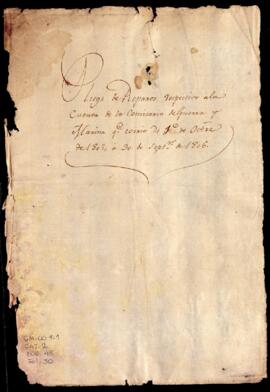 Pliego de Reparos respectivo a la
Cuenta de la Comisaria de Guerra y
Marina qe. corrió de 1º. de Octre.
de 1805 a 30 de Septre. de 1806.
GM-CO 4.1
CAJ. 2
DOC. 45
Fol. 30